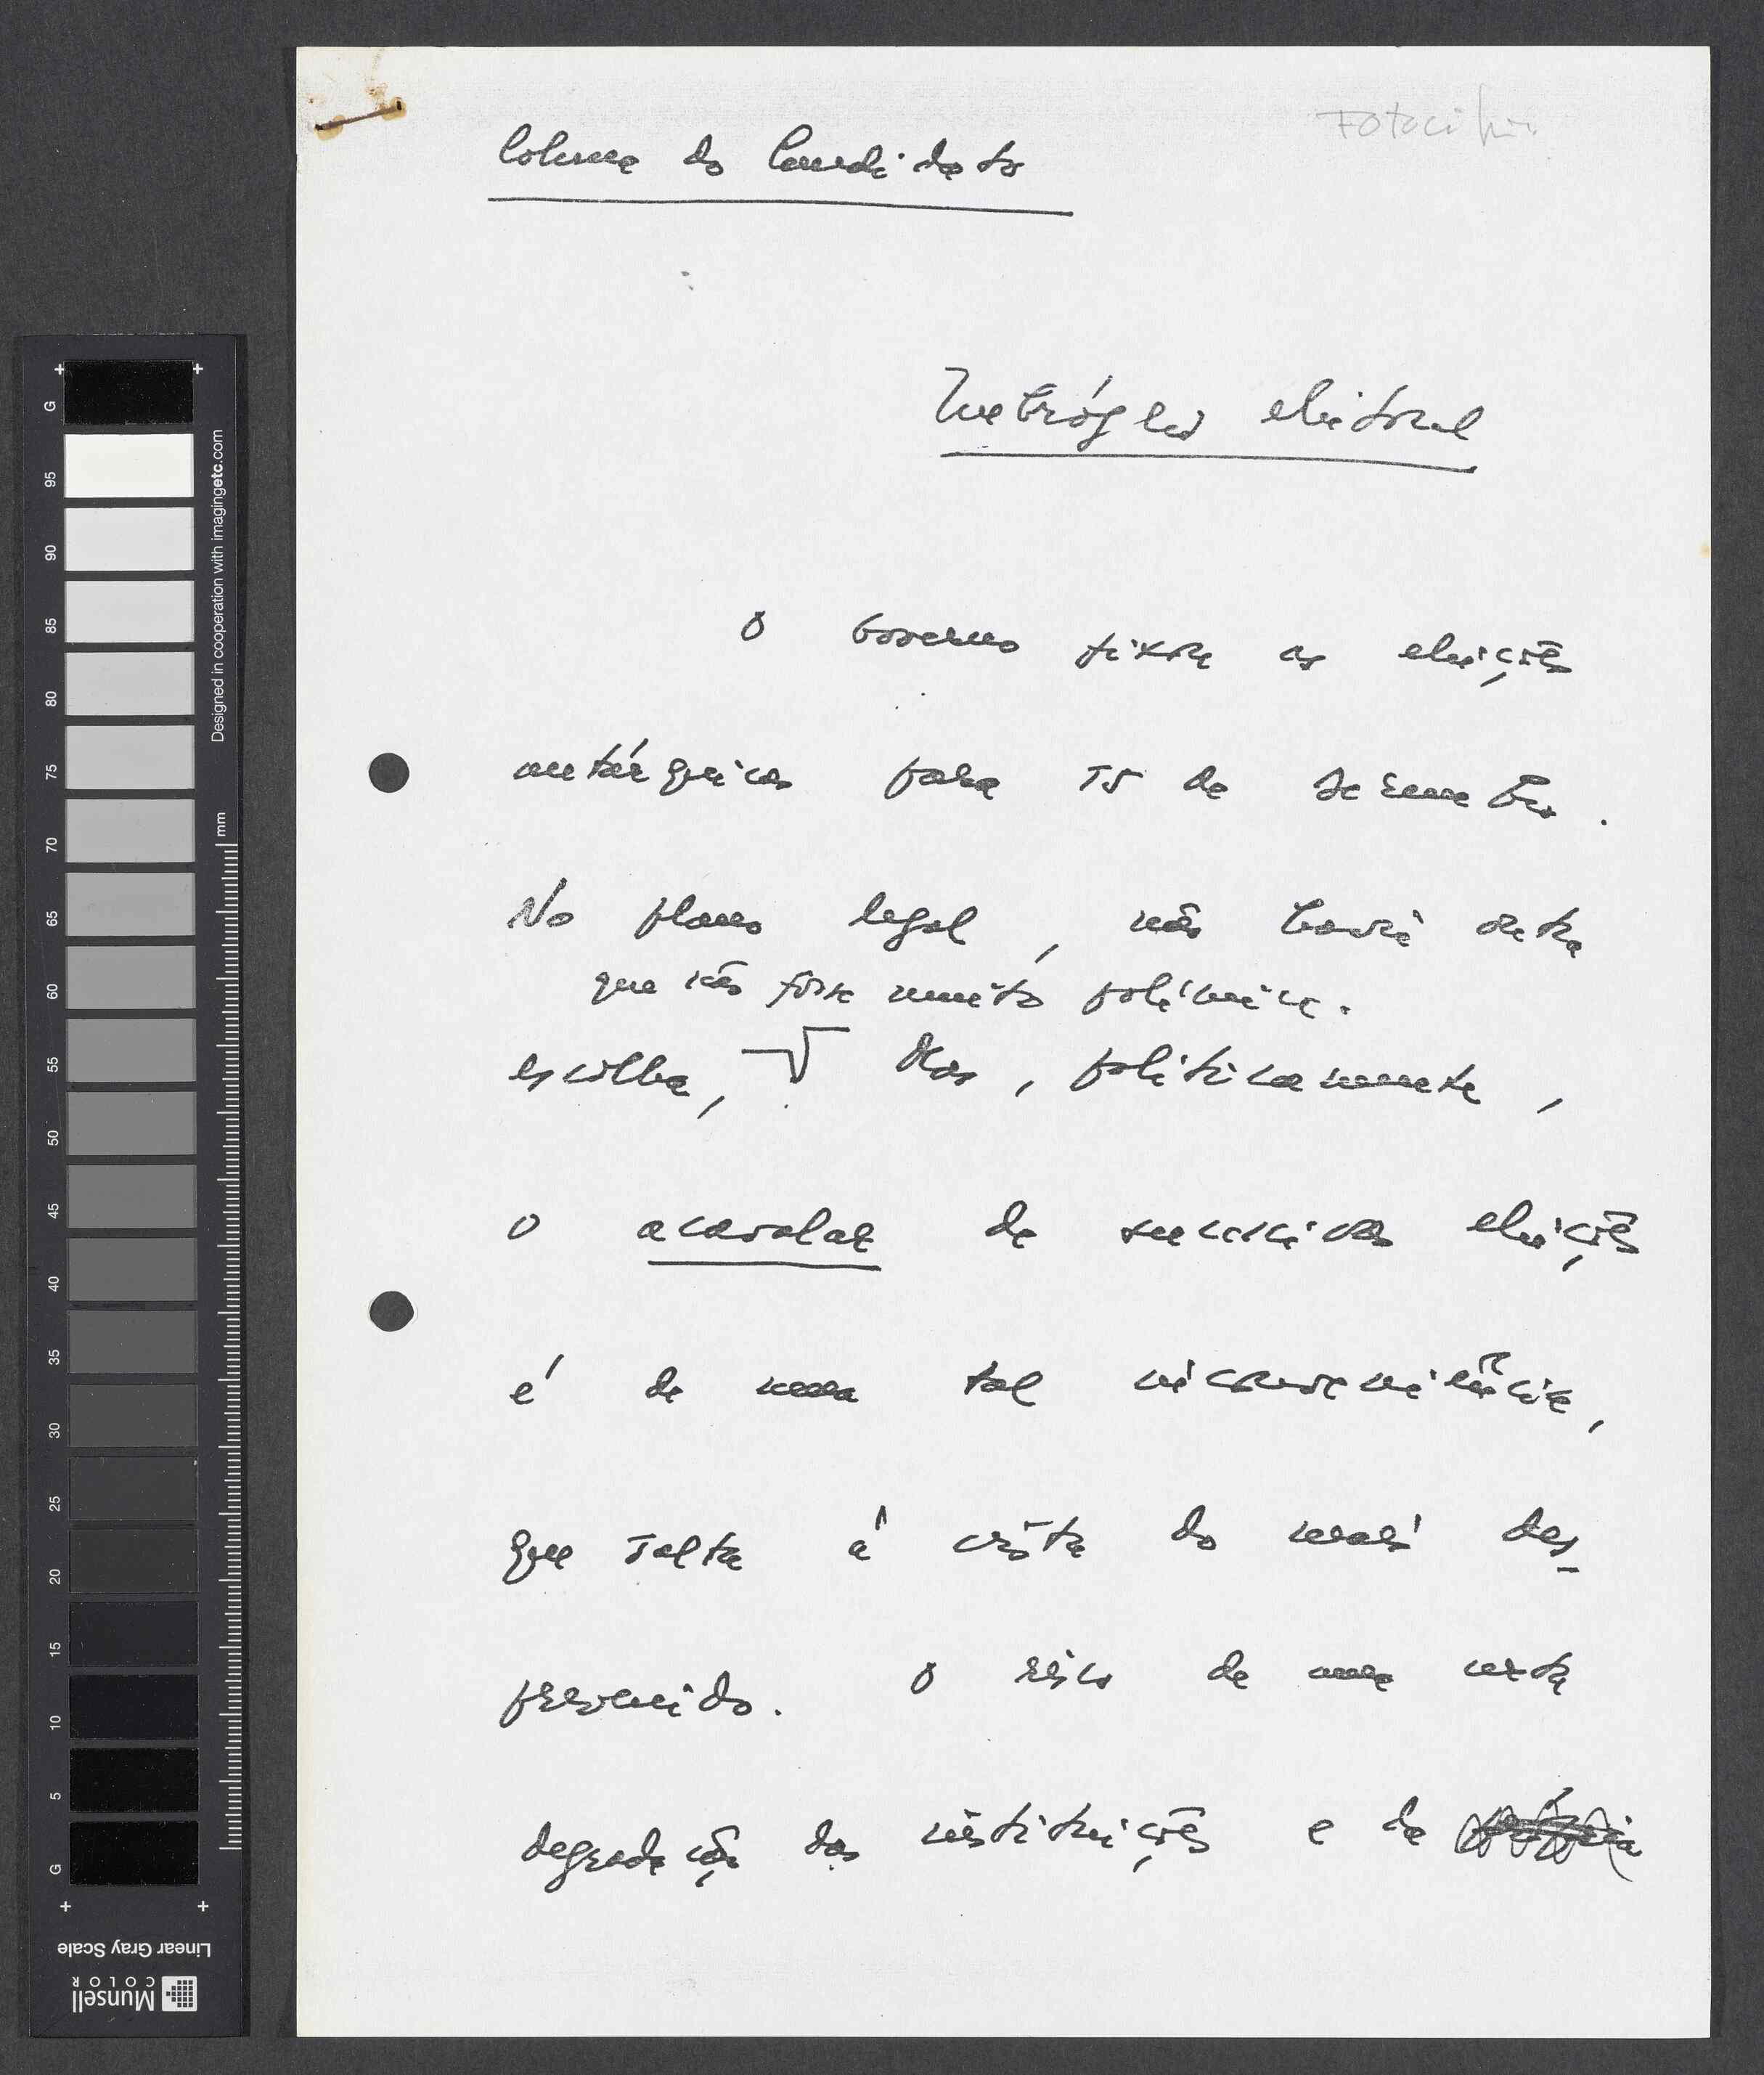 Fotocópia
Coluna do Candidato
Imbróglio eleitoral
O Governo fixou as eleições
autárquicas para 15 de Dezembro.
No plano legal, não havia outra
que não fosse muito polémica.
escolha,
Mas, politicamente,
o acavalar de sucessivas eleições
é de uma tal inconveniência,
que salta à vista do mais des-
prevenido. O risco de uma certa
degradação das instituições e da
G
95
90
85
80
75
70
65
60
55
50
45
40
35
30
25
20
15
10
5
G
mm
Designed in cooperation with imagingetc.com
Linear Gray Scale
Munsell
COLOR